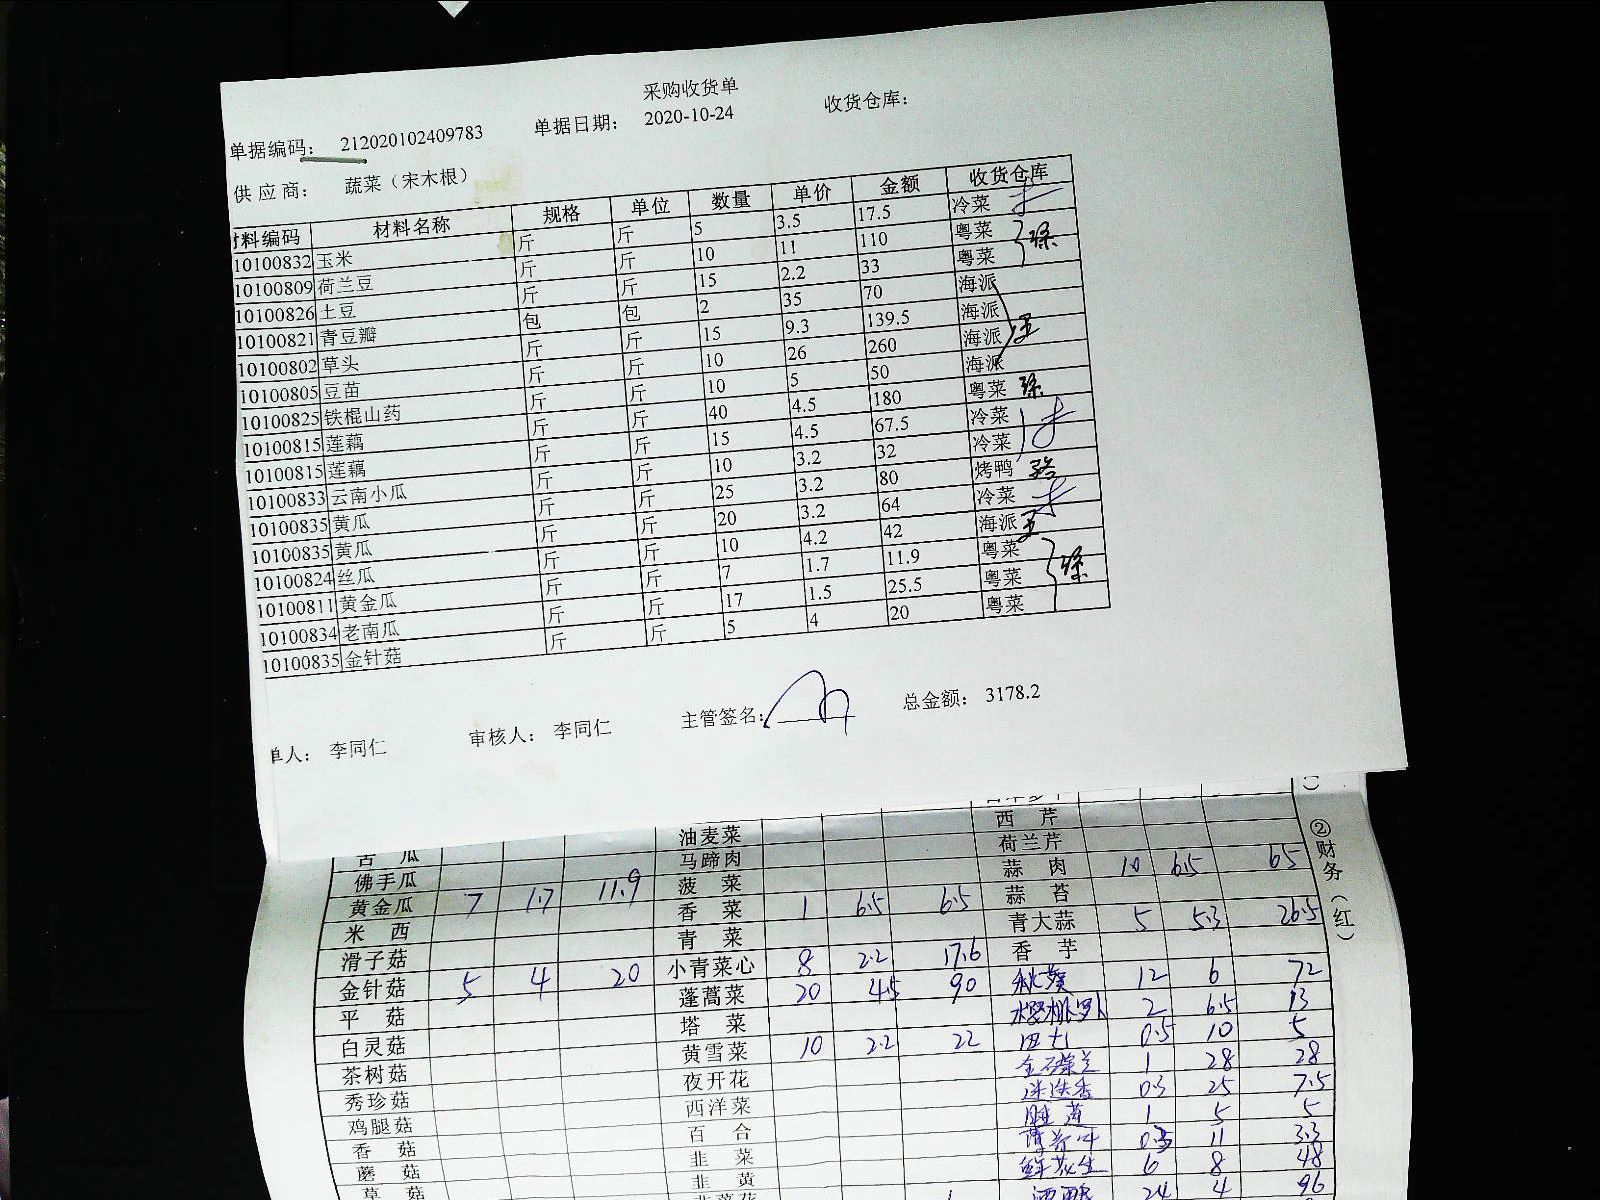 采购收货单
单据编码: 212020102409783 单据日期: 2020-10-24 收货仓库:
供应商: 蔬菜（宋木根）
料编码 材料名称 规格 单位 数量 单价 金额 收货仓库
10100832 玉米 斤 斤 5 3.5 17.5 冷菜
10100809 荷兰豆 斤 斤 10 11 110 粤菜
10100826 土豆 斤 斤 15 2.2 33 粤菜
10100821 青豆瓣 包 包 2 35 70 海派
10100802 草头 斤 斤 15 9.3 139.5 海派
10100805 豆苗 斤 斤 10 26 260 海派
10100825 铁棍山药 斤 斤 10 5 50 海派
10100815 莲藕 斤 斤 40 4.5 180 粤菜
10100815 莲藕 斤 斤 15 4.5 67.5 冷菜
10100833 云南小瓜 斤 斤 10 3.2 32 冷菜
10100835 黄瓜 斤 斤 25 3.2 80 烤鸭
10100835 黄瓜 斤 斤 20 3.2 64 冷菜
10100824 丝瓜 斤 斤 10 4.2 42 海派 王
10100811 黄金瓜 斤 斤 7 1.7 11.9 粤菜
10100834 老南瓜 斤 斤 17 1.5 25.5 粤菜
10100835 金针菇 斤 斤 5 4 20 粤菜
单人: 李同仁 审核人: 李同仁 主管签名: 总金额: 3178.2
苦瓜 油麦菜 西芹
佛手瓜 马蹄肉 荷兰芹
黄金瓜 7 1.7 11.9 菠菜 蒜肉 10 6.5 65
米西 香菜 1 6.5 6.5 蒜苔
滑子菇 青菜 青大蒜 5 5.3 26.5
金针菇 5 4 20 小青菜心 8 2.2 17.6 香芋
平菇 蓬蒿菜 20 4.5 90 秋葵 12 6 72
白灵菇 塔菜 樱桃萝卜 2 6.5 13
茶树菇 黄雪菜 10 2.2 22 0.5 10 5
秀珍菇 夜开花 1 28 28
鸡腿菇 西洋菜 迷迭香 0.3 25 7.5
香菇 百合 1 5 5
蘑菇 韭菜 薄荷叶 0.3 11 3.3
草菇 韭黄 鲜花生 6 8 48
韭菜花 酒酿 24 4 96
②财务（红）